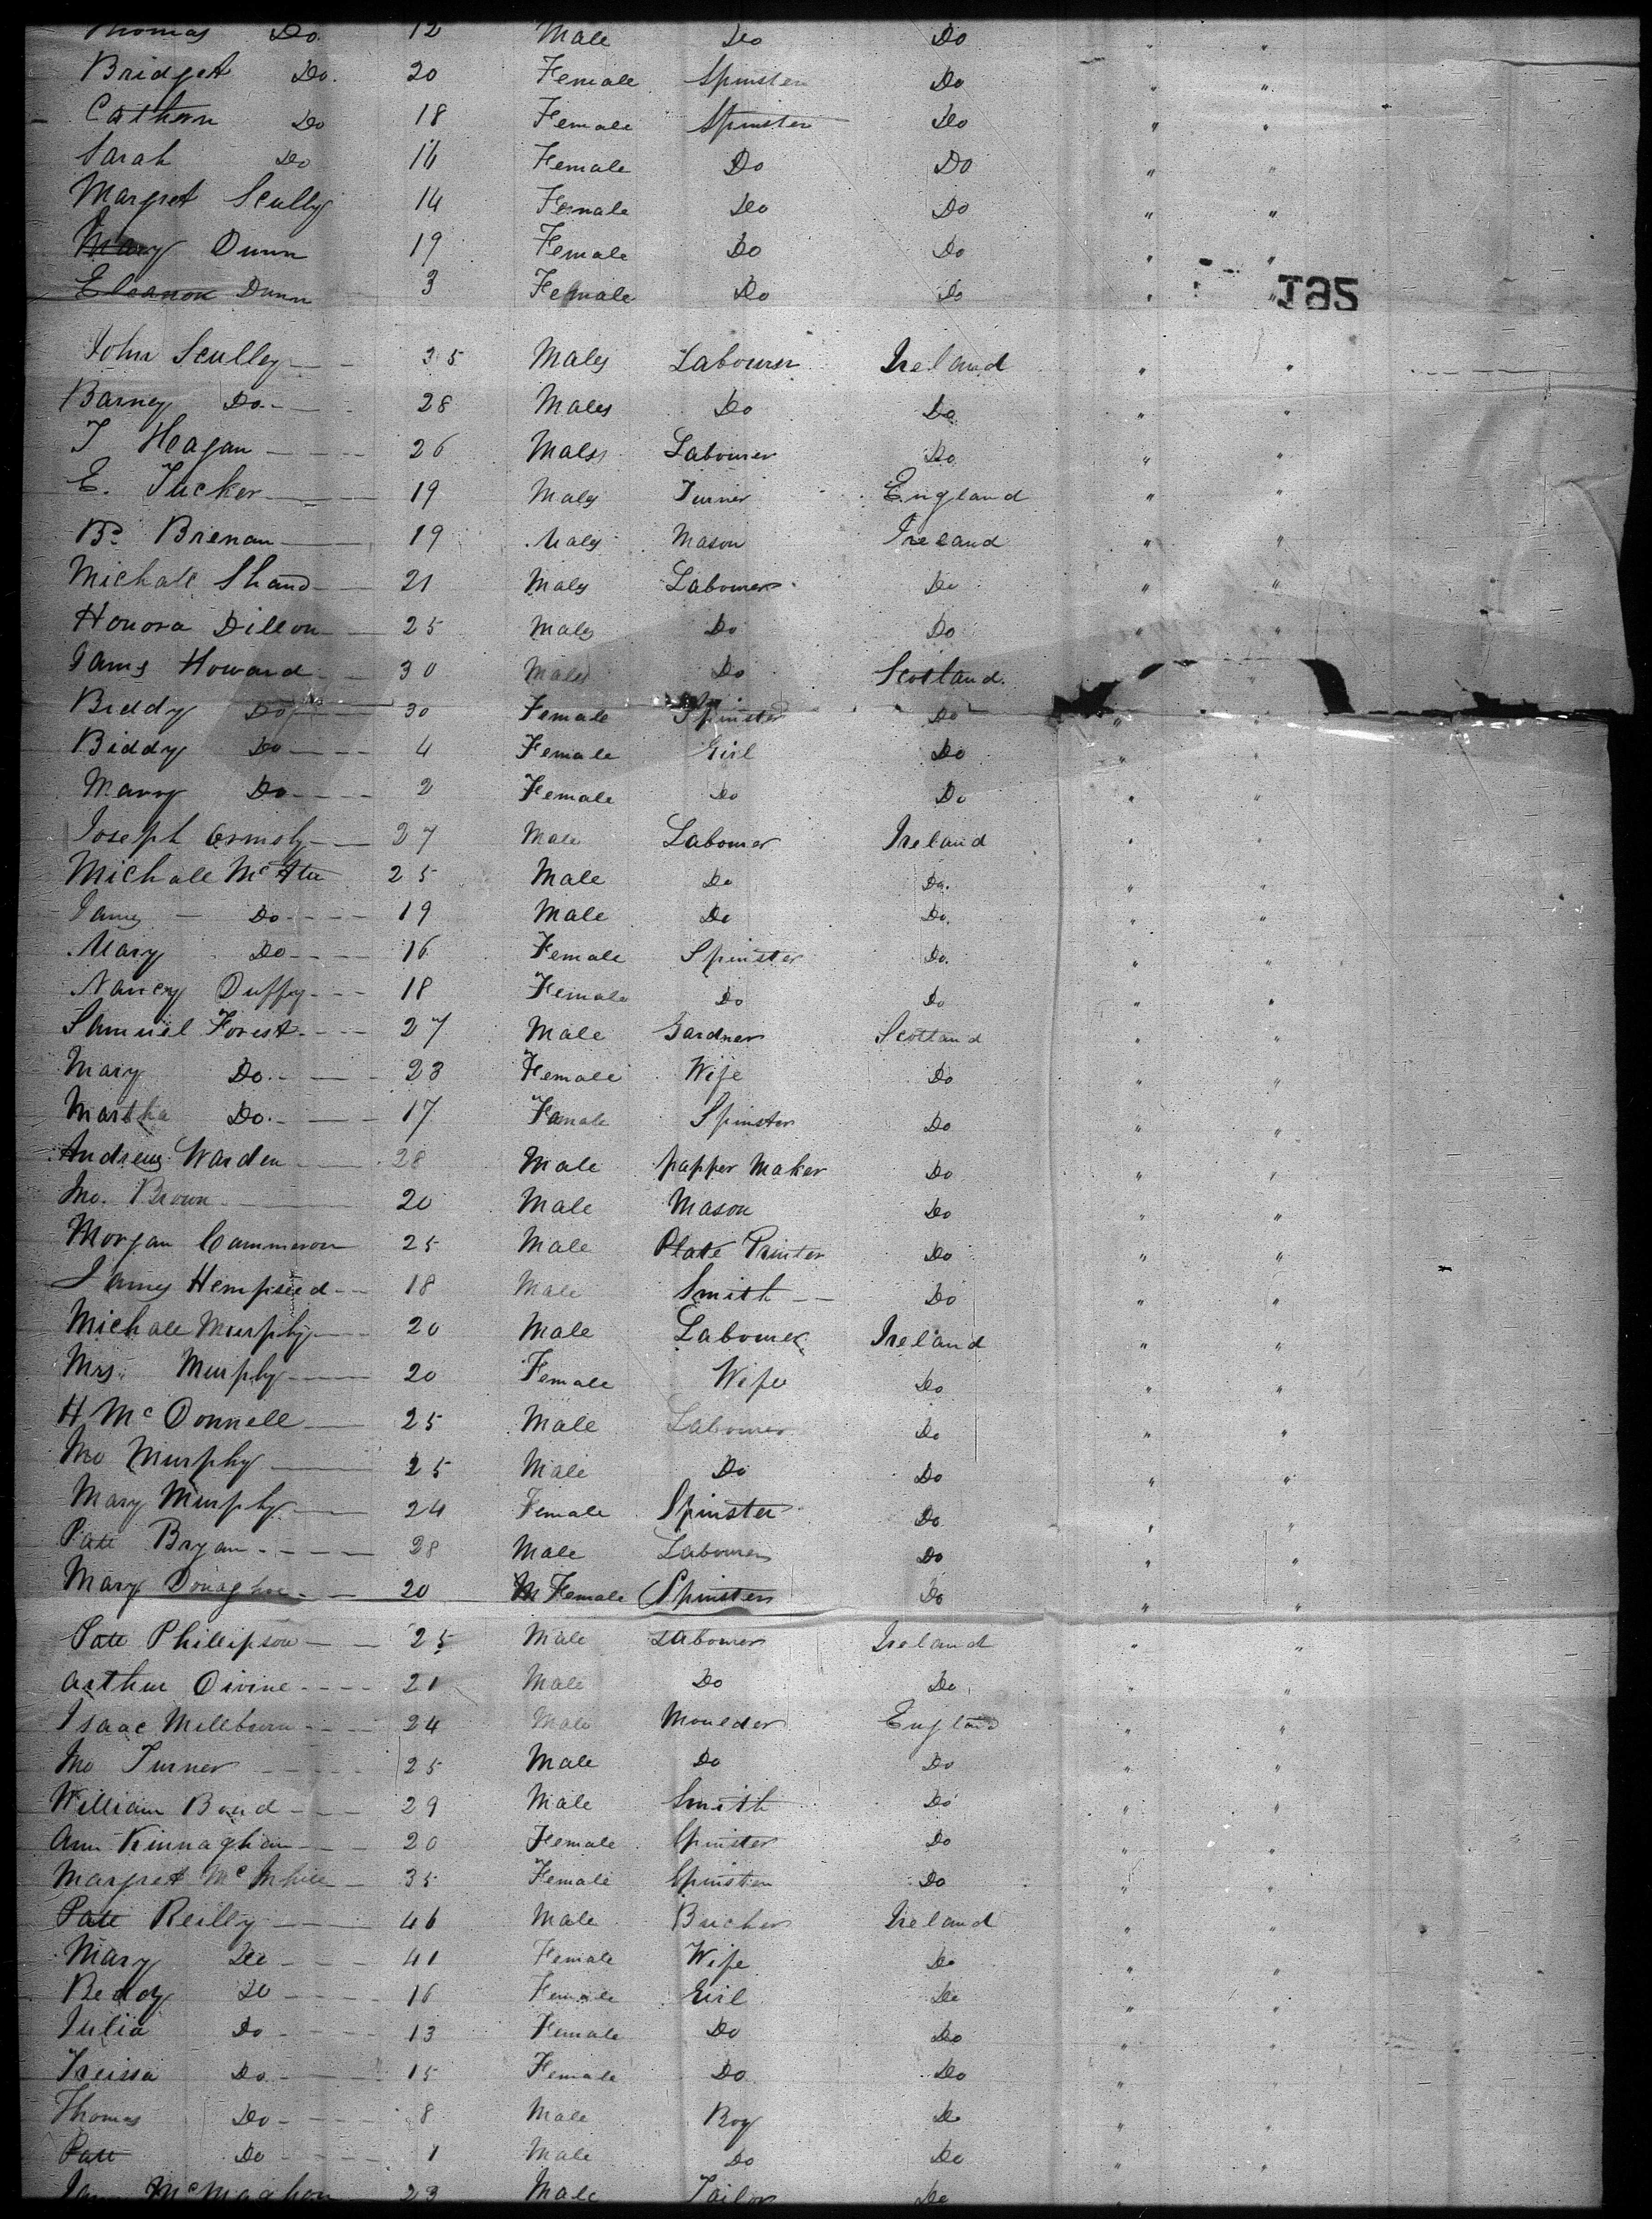 Thomas Do. 12 Male Do Do " "
Bridget Do. 20 Female Spinster Do " "
Cathern Do 18 Female Spinster Do " "
Sarah Do 16 Female Do Do " "
Margret Scully 14 Female Do Do " "
Mary Dunn 19 Female Do Do " "
Eleanor Dunn 3 Female Do Do " "
J85
John Sculley 35 Male Labourer Ireland " "
Barney Do. 28 Male Do Do " "
T Heagan 26 Male Labourer Do " "
E. Tucker 19 Male Turner England " "
Brenan 19 Male Mason Ireland " "
Michale Shand 21 Male Labourer Do " "
Honora Dillon 25 Male Do Do " "
James Howard 30 Male Do Scotland. "
Biddy Do 30 Female Spinster Do " "
Biddy Do 4 Female Girl Do " "
Marry Do 2 Female Do Do " "
Joseph Ormsby 27 Male Labourer Ireland " "
Michale 25 Male Do Do. " "
James Do 19 Male Do Do. " "
Mary Do 16 Female Spinster Do. " "
Nancy Duffy 18 Female Do Do " "
Samuel Forest 27 Male Gardner Scotland " "
Mary Do. 23 Female Wife Do " "
Martha Do. 17 Female Spinster Do " "
Andrew Warden 28 Male papper Maker Do " "
Jno. Brown 20 Male Mason Do " "
Morgan Cammeron 25 Male Plate Printer Do " "
James Hempseed 18 Male Smith Do " "
Michale Murphy 20 Male Labourer Ireland " "
Mrs. Murphy 20 Female Wife Do " "
H McDonnell 25 Male Labourer Do " "
Jno Murphy 25 Male Do Do " "
Mary Murphy 24 Female Spinster Do " "
Patt Bryan 28 Male Labourer Do " "
Mary Donaghoe 20 Female Spinster Do " "
Patt Phillipson 25 Male Labourer Ireland " "
Arthur Divine 21 Male Do Do " "
Isaac Millbourn 24 Male Moulder England " "
Jno Turner 25 Male Do Do " "
William Bond 29 Male Smith Do " "
Ann Kinnaghan 20 Female Spinster Do " "
Margret 35 Female Spinster Do " "
Patt Reilly 46 Male Bucher Ireland " "
Mary Do 41 Female Wife Do " "
Beddy Do 16 Female Girl Do " "
Julia Do 13 Female Do Do " "
Treissa Do 15 Female Do Do " "
Thomas Do 8 Male Boy Do " "
Patt Do 1 Male Do Do " "
McMaghon 23 Male Tailor Do "